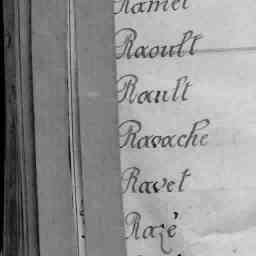 Hamel
Raoult
Rault
Ravache
Ravet
Razé